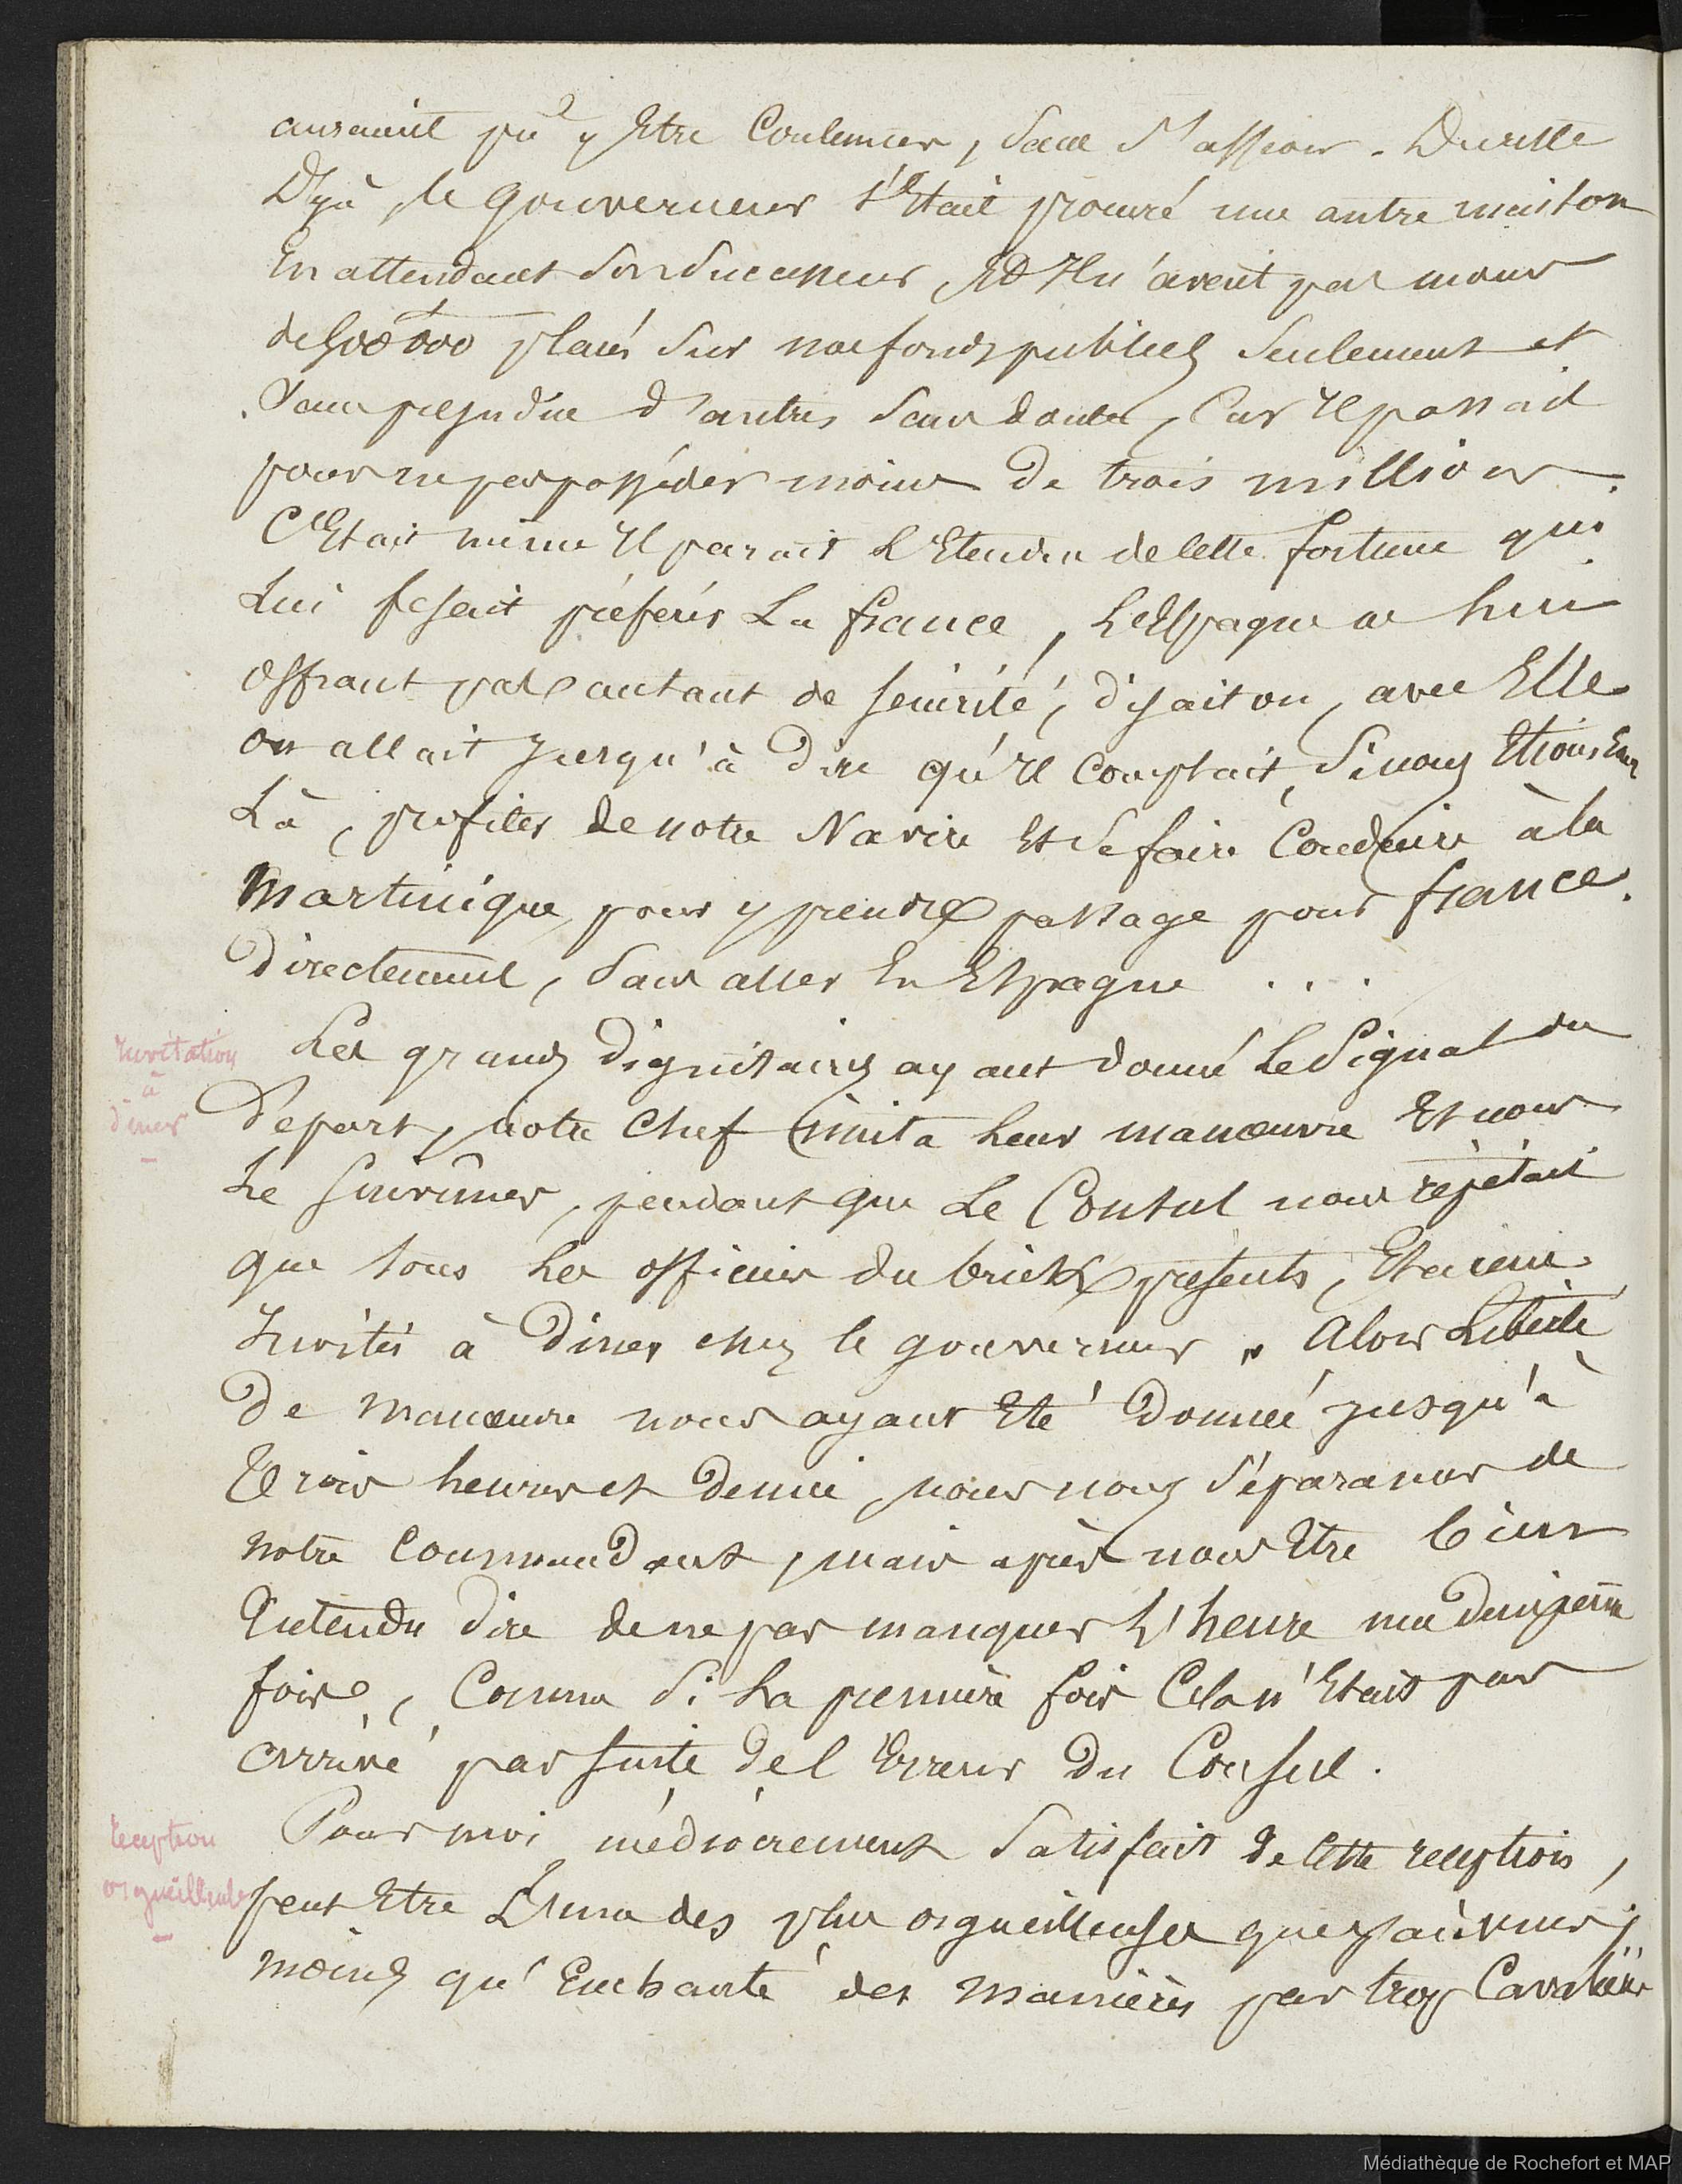 auraient pu y Etre Contenues, Sans s'asseoir. Du reste
Déjà, le gouverneur s'Etait procuré une autre maison
En attendant Son Successeur, Et Il n'avait pas moins
de 500 000 placés Sur nos fonds publics Seulement et
Sans prejudice d'autres Sans doute, Car Il passait
pour ne pas posséder moins de trois millions.
C'Etait même Il parait L'Etendue de cette fortune qui
Lui fesait préférer La france, L'Espagne ne Lui
offrant pas autant de sécurité, disait on, avec Elle
on allait Jusqu'à dire qu'Il comptait, Si nous Etions En
Là, profiter de notre Navire Et Se faire Conduire à la
Martinique, pour y prendre passage pour france.
Directement, Sans aller En Espagne ...
Invitation
à
diner
Les grands Dignitaires ayant donné Le Signal du
Départ, notre Chef imita Leur manœuvre Et nous
Le suivîmes, pendant que Le Consul nous répétait
que tous Les officiers du brick présents, Etaient
Invités à Diner chez le gouverneur. Alors Liberté
De manœuvre nous ayant Eté Donnée jusqu'à
Trois heures et Demie, nous nous Séparames de
notre Commandant, mais après nous Etre bien
Entendu dire de ne pas manquer L'heure une deuxième
fois, Comme Si La première fois Cela n'Etait pas
arrivé par suite de l'Erreur Du Consul.
Reception
orgueilleuse
Pour moi, médiocrement Satisfait de Cette reception,
peut Etre L'une des plus orgueilleuses que j'ai vues;
moins qu'Enchanté des manières par trop Cavalières
Médiathèque de Rochefort et MAP